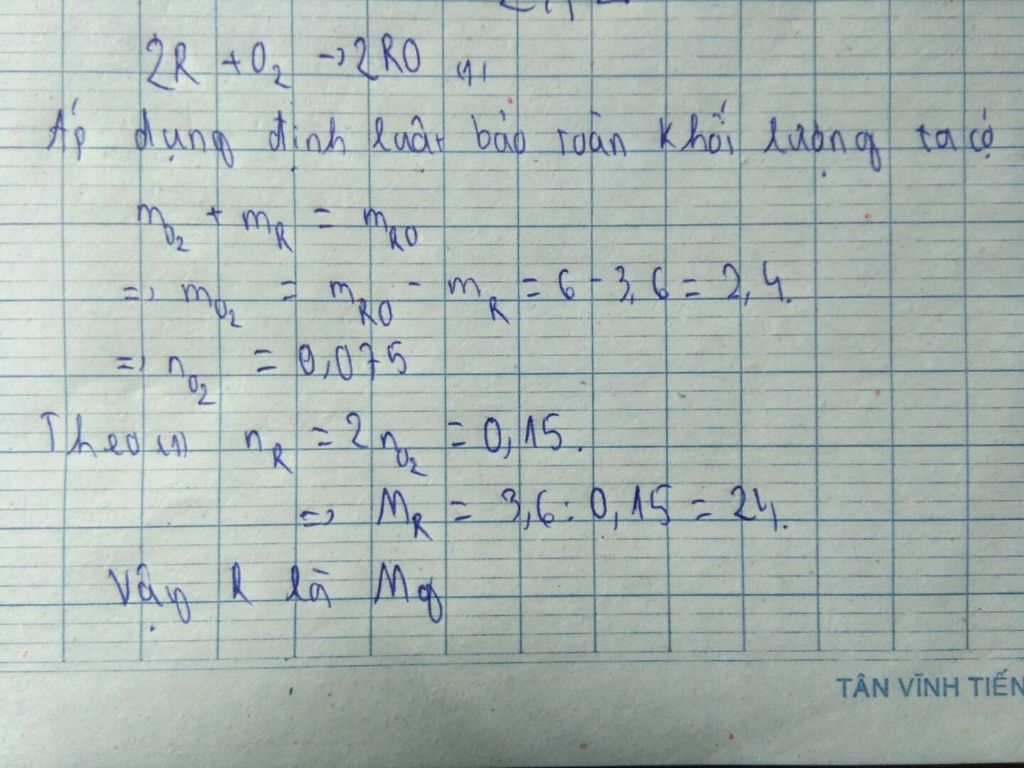 2R + O₂ → 2RO (1)
Áp dụng định luật bảo toàn khối lượng ta có
m_O₂ + m_R = m_RO
=> m_O₂ = m_RO - m_R = 6 - 3,6 = 2,4.
=> n_O₂ = 0,075
Theo (1) n_R = 2n_O₂ = 0,15.
=> M_R = 3,6 : 0,15 = 24.
Vậy R là Mg
TÂN VĨNH TIẾN